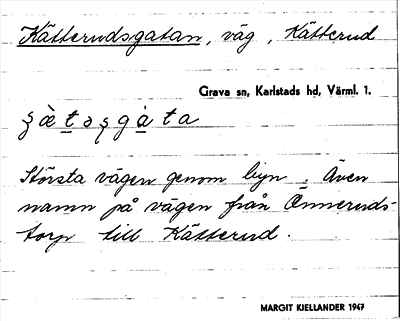 Kätterudsgatan, väg, Kätterud
Grava sn, Karlstads hd, Värml. 1.
Största vägen genom byn. Även
namn på vägen från Önneruds-
torp till Kätterud.
MARGIT KIELLANDER 1947